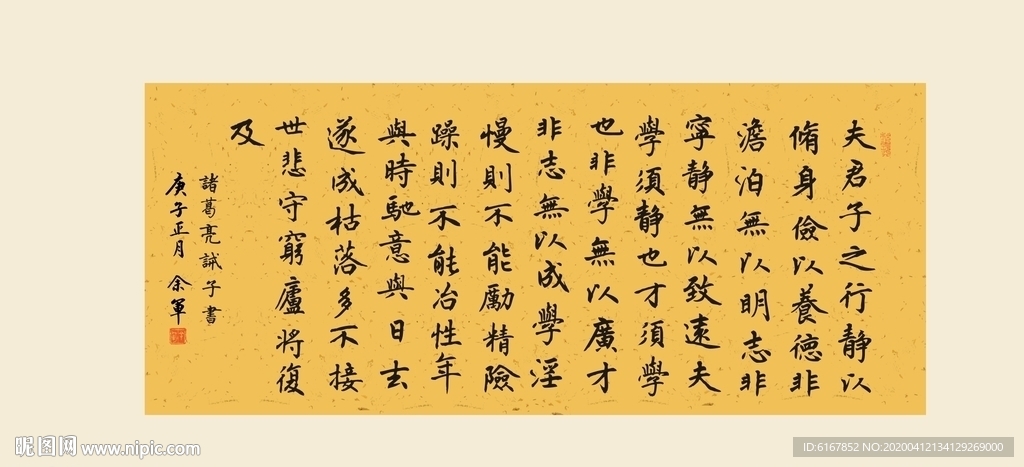 夫君子之行静以
脩身儉以養德非
澹泊無以明志非
寧静無以致遠夫
學須静也才須學
也非學無以廣才
非志無以成學淫
慢則不能勵精險
躁則不能冶性年
與時馳意與日去
遂成枯落多不接
世悲守窮廬將復
及
諸葛亮誡子書
庚子正月 余軍
昵图网 www.nipic.com
ID:6167852 NO:20200412134129269000